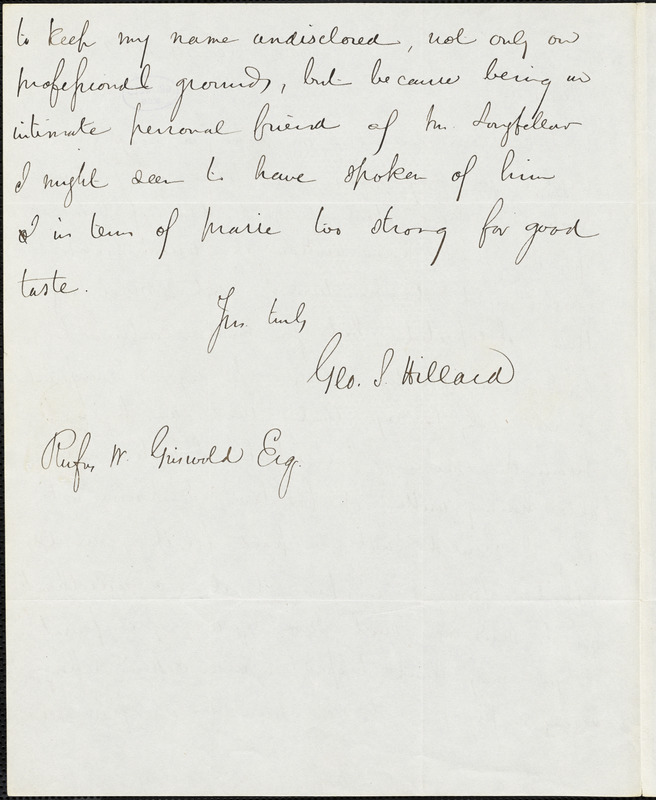 to keep my name undisclosed, not only on
professional grounds, but because being an
intimate personal friend of Mr. Longfellow
I might seem to have spoken of him
in terms of praise too strong for good
taste.
Yrs. truly
Geo. S. Hillard
Rufus W. Griswold Esq.